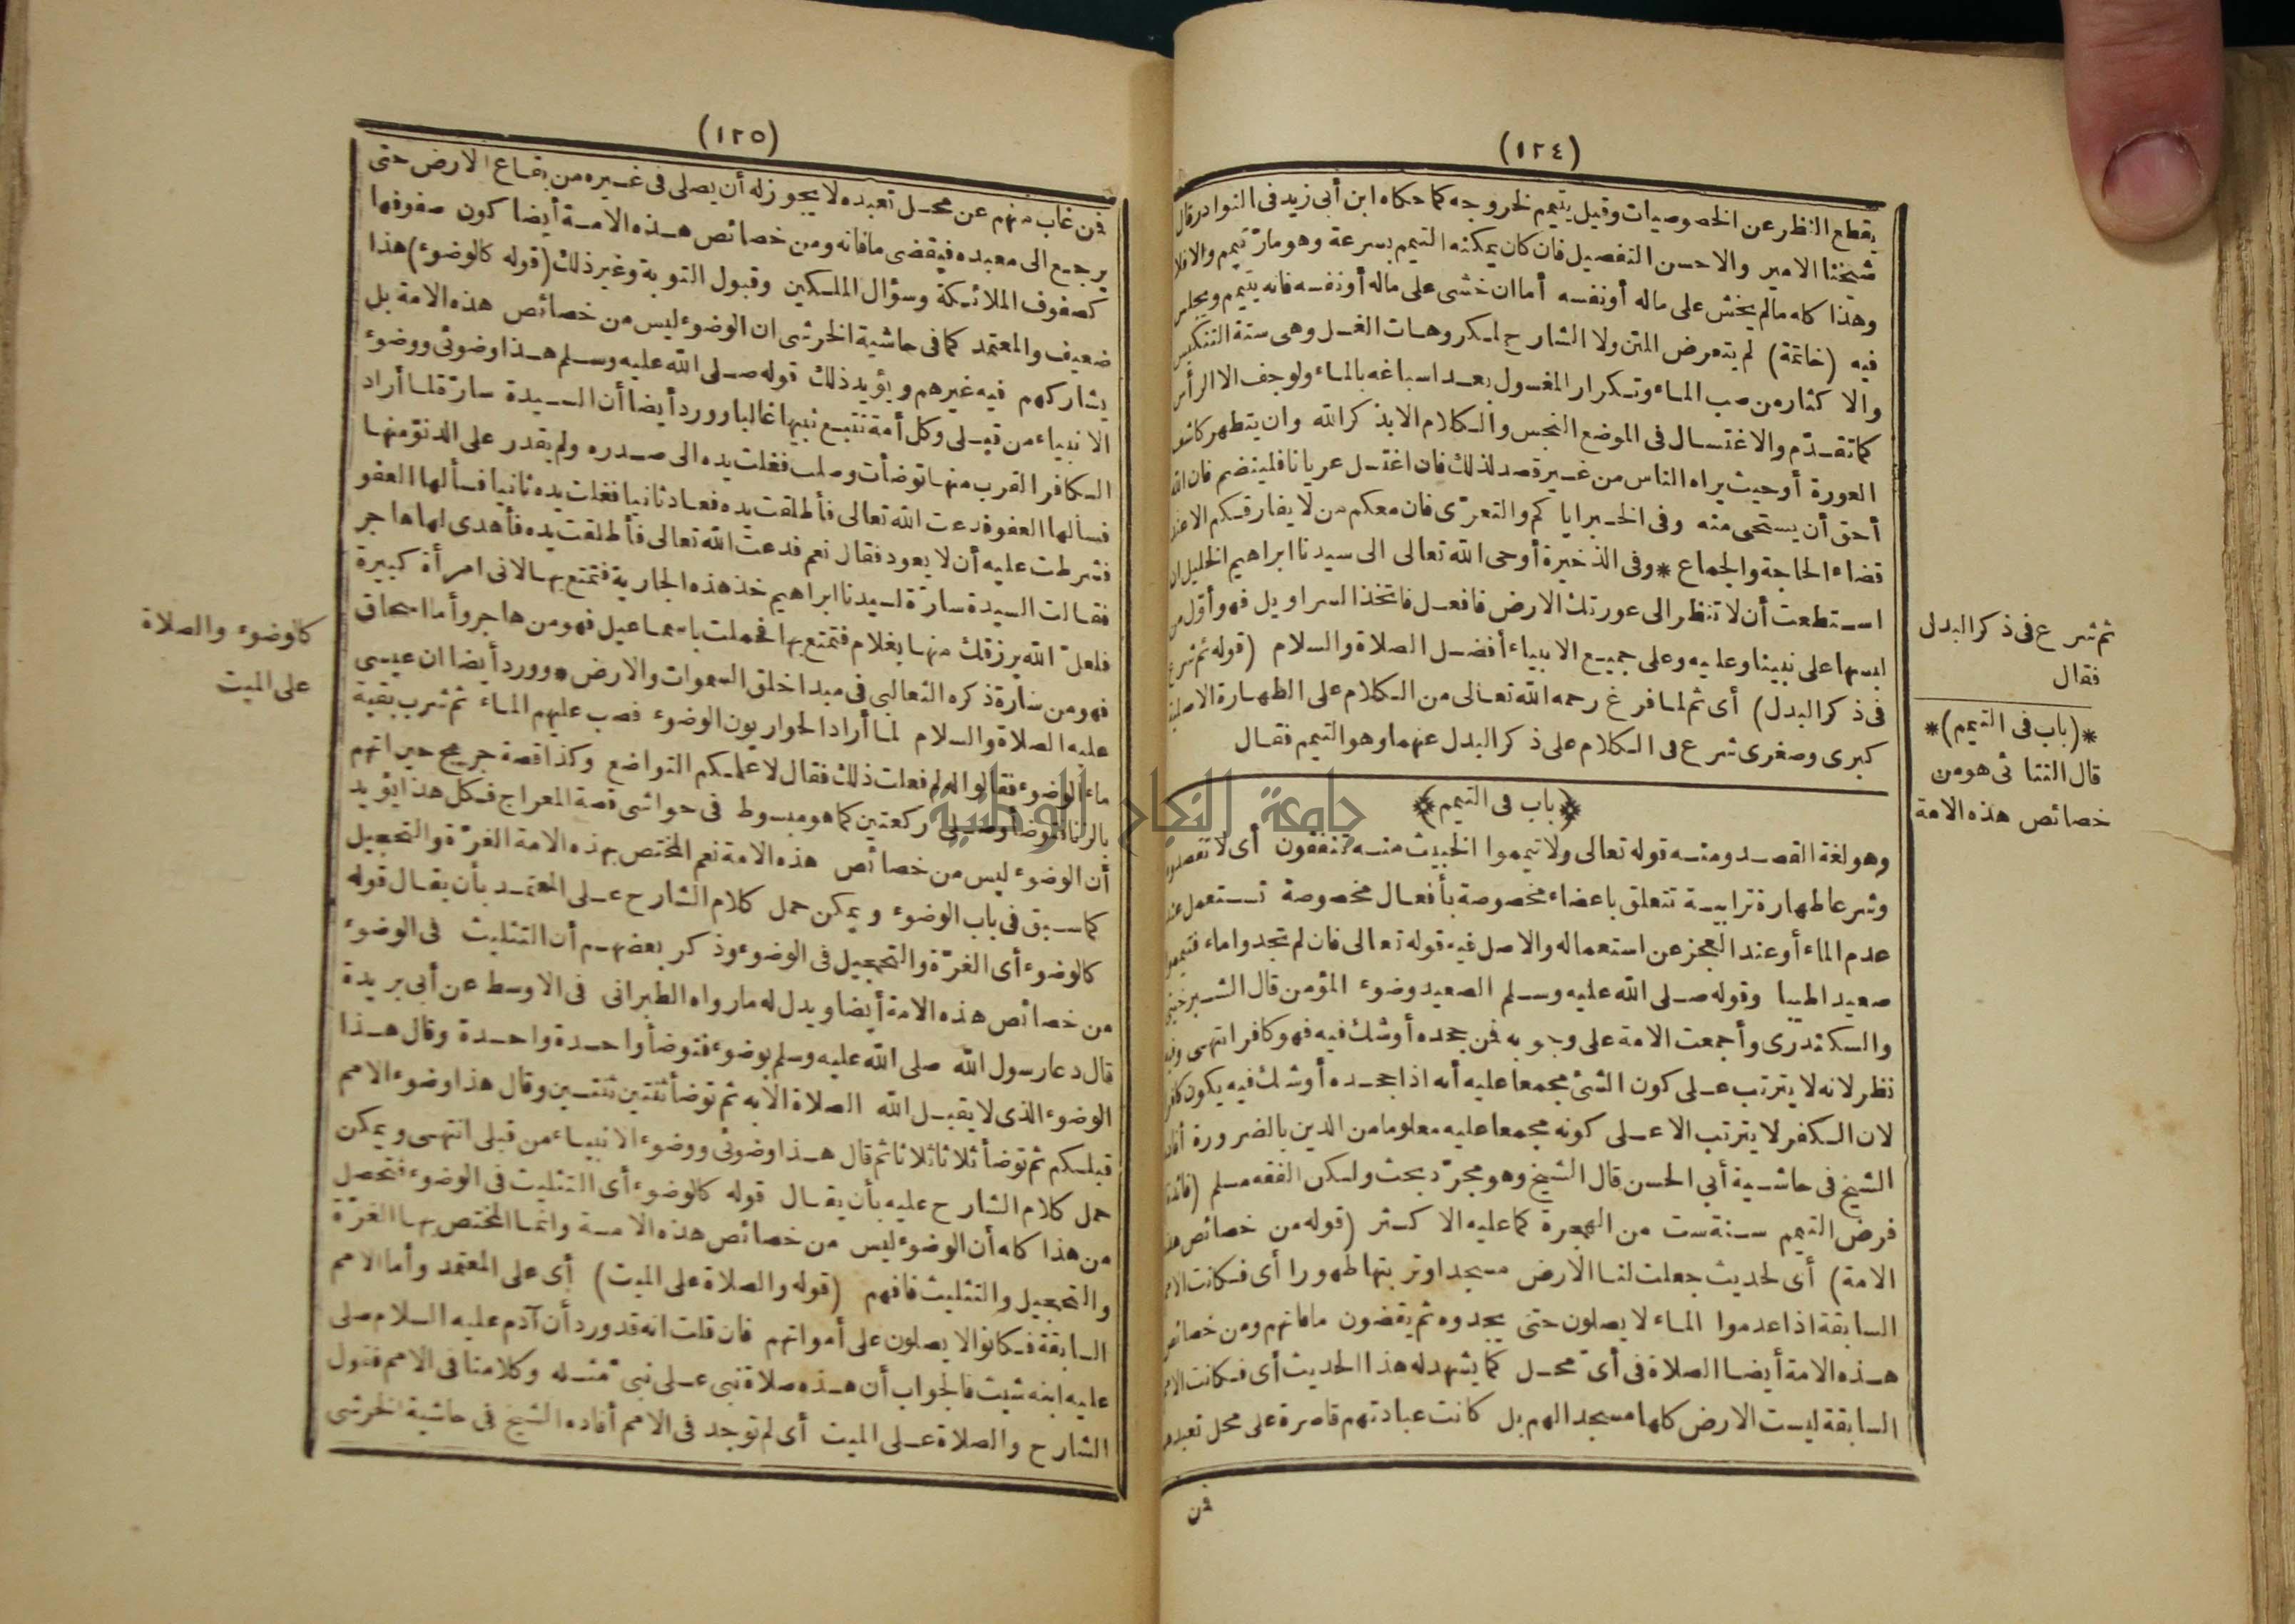 (١٢٤)
يقطع النظر عن الخصوصيات وقيل يتيمم لخروجه كما حكاه ابن أبى زيد فى النوادر قال
شيخنا الامير والاحسن التفصيل فان كان يمكنه التيمم بسرعة وهو مارّ تيمم والا فلا
وهذا كله مالم يخش على ماله أو نفسه أما ان خشى على ماله أو نفسه فانه يتيمم ويجلس
فيه (خاتمة) لم يتعرض المتن ولا الشارح لمكروهات الغسل وهى ستة التنكيس
والاكثار من صب الماء وتكرار المغسول بعد اسباغه بالماء ولو جف الا الرأس
كما تقدّم والاغتسال فى الموضع النجس والكلام الا بذكر الله وان يتطهر كاشف
العورة أو حيث يراه الناس من غير قصد لذلك فان اغتسل عريانا فلينضم فان الله
أحق أن يستحى منه وفى الخبر اياكم والتعرّى فان معكم من لا يفارقكم الا عند
قضاء الحاجة والجماع * وفى الذخيرة أوحى الله تعالى الى سيدنا ابراهيم الخليل ان
استطعت أن لا تنظر الى عورتك الارض فافعل فاتخذ السراويل فهو أوّل من
لبسها على نبينا وعليه وعلى جميع الانبياء أفضل الصلاة والسلام (قوله ثم شرع
فى ذكر البدل) أى ثم لما فرغ رحمه الله تعالى من الكلام على الطهارة الاصلية
كبرى وصغرى شرع فى الكلام على ذكر البدل عنهما وهو التيمم فقال
﴿باب فى التيمم﴾
وهو لغة القصد ومنه قوله تعالى ولا تيمموا الخبيث منه تنفقون أى لا تقصدوه
وشرعا طهارة ترابية تتعلق باعضاء مخصوصة بأفعال مخصوصة تستعمل عند
عدم الماء أو عند العجز عن استعماله والاصل فيه قوله تعالى فان لم تجدوا ماء فتيمموا
صعيدا طيبا وقوله صلى الله عليه وسلم الصعيد وضوء المؤمن قال الشبرخيتى
والسكندرى وأجمعت الامة على وجوبه فمن جحده أو شك فيه فهو كافر انتهى وفيه
نظر لانه لا يترتب على كون الشئ مجمعا عليه أنه اذا جحده أو شك فيه يكون كافرا
لان الكفر لا يترتب الا على كونه مجمعا عليه معلوما من الدين بالضرورة أفاده
الشيخ فى حاشية أبى الحسن قال الشيخ وهو مجرّد بحث ولكن الفقه مسلم (فائدة)
فرض التيمم سنة ست من الهجرة كما عليه الاكثر (قوله من خصائص هذه
الامة) أى لحديث جعلت لنا الارض مسجدا وتربتها طهورا أى فكانت الامم
السابقة اذا عدموا الماء لا يصلون حتى يجدوه ثم يقضون ما فاتهم ومن خصائص
هذه الامة أيضا الصلاة فى أىّ محل كما يشهد له هذا الحديث أى فكانت الامم
السابقة ليست الارض كلها مسجدا لهم بل كانت عبادتهم قاصرة على محل تعبدهم
فمن
ثم شرع فى ذكر البدل
فقال
*(باب فى التيمم)*
قال التتائى هو من
خصائص هذه الامة
(١٢٥)
فمن غاب منهم عن محل تعبده لا يجوز له أن يصلى فى غيره من بقاع الارض حتى
يرجع الى معبده فيقضى ما فاته ومن خصائص هذه الامة أيضا كون صفوفها
كصفوف الملائكة وسؤال الملكين وقبول التوبة وغير ذلك (قوله كالوضوء) هذا
ضعيف والمعتمد كما فى حاشية الخرشى ان الوضوء ليس من خصائص هذه الامة بل
يشاركهم فيه غيرهم ويؤيد ذلك قوله صلى الله عليه وسلم هذا وضوئى ووضوء
الانبياء من قبلى وكل أمة تتبع نبيها غالبا وورد أيضا أن السيدة سارّة لما أراد
الكافر القرب منها توضأت وصلت فغلت يده الى صدره ولم يقدر على الدنوّ منها
فسألها العفو فدعت الله تعالى فأطلقت يده فعاد ثانيا فغلت يده ثانيا فسألها العفو
فشرطت عليه أن لا يعود فقال نعم فدعت الله تعالى فأطلقت يده فأهدى لها هاجر
فقالت السيدة سارّة لسيدنا ابراهيم خذ هذه الجارية فتمتع بها لانى امرأة كبيرة
فلعلّ الله يرزقك منها بغلام فتمتع بها فحملت باسماعيل فهو من هاجر وأما اسحاق
فهو من سارة ذكره الثعالبى فى مبدا خلق السموات والارض * وورد أيضا ان عيسى
عليه الصلاة والسلام لما أراد الحواريون الوضوء فصب عليهم الماء ثم شرب بقية
ماء الوضوء فقالوا له لم فعلت ذلك فقال لاعلمكم التواضع وكذا قصة جريج حين اتهم
بالزنا توضأ وصلى ركعتين كما هو مبسوط فى حواشى قصة المعراج فكل هذا يؤيد
أن الوضوء ليس من خصائص هذه الامة نعم المختص بهذه الامة الغرّة والتحجيل
كما سبق فى باب الوضوء ويمكن حمل كلام الشارح على المعتمد بأن يقال قوله
كالوضوء أى الغرّة والتحجيل فى الوضوء وذكر بعضهم أن التثليث فى الوضوء
من خصائص هذه الامة أيضا ويدل له ما رواه الطبرانى فى الاوسط عن أبى بريدة
قال دعا رسول الله صلى الله عليه وسلم بوضوء فتوضأ واحدة واحدة وقال هذا
الوضوء الذى لا يقبل الله الصلاة الا به ثم توضأ ثنتين ثنتين وقال هذا وضوء الامم
قبلكم ثم توضأ ثلاثا ثلاثا ثم قال هذا وضوئى ووضوء الانبياء من قبلى انتهى ويمكن
حمل كلام الشارح عليه بأن يقال قوله كالوضوء أى التثليث فى الوضوء فتحصل
من هذا كله أن الوضوء ليس من خصائص هذه الامة وانما المختص بها الغرّة
والتحجيل والتثليث فافهم (قوله والصلاة على الميت) أى على المعتمد وأما الامم
السابقة فكانوا لا يصلون على أمواتهم فان قلت انه قد ورد أن آدم عليه السلام صلى
عليه ابنه شيث فالجواب أن هذه صلاة نبى على نبىّ مثله وكلامنا فى الامم فقول
الشارح والصلاة على الميت أى لم توجد فى الامم أفاده الشيخ فى حاشية الخرشى
كالوضوء والصلاة
على الميت
جامعة النجاح الوطنية